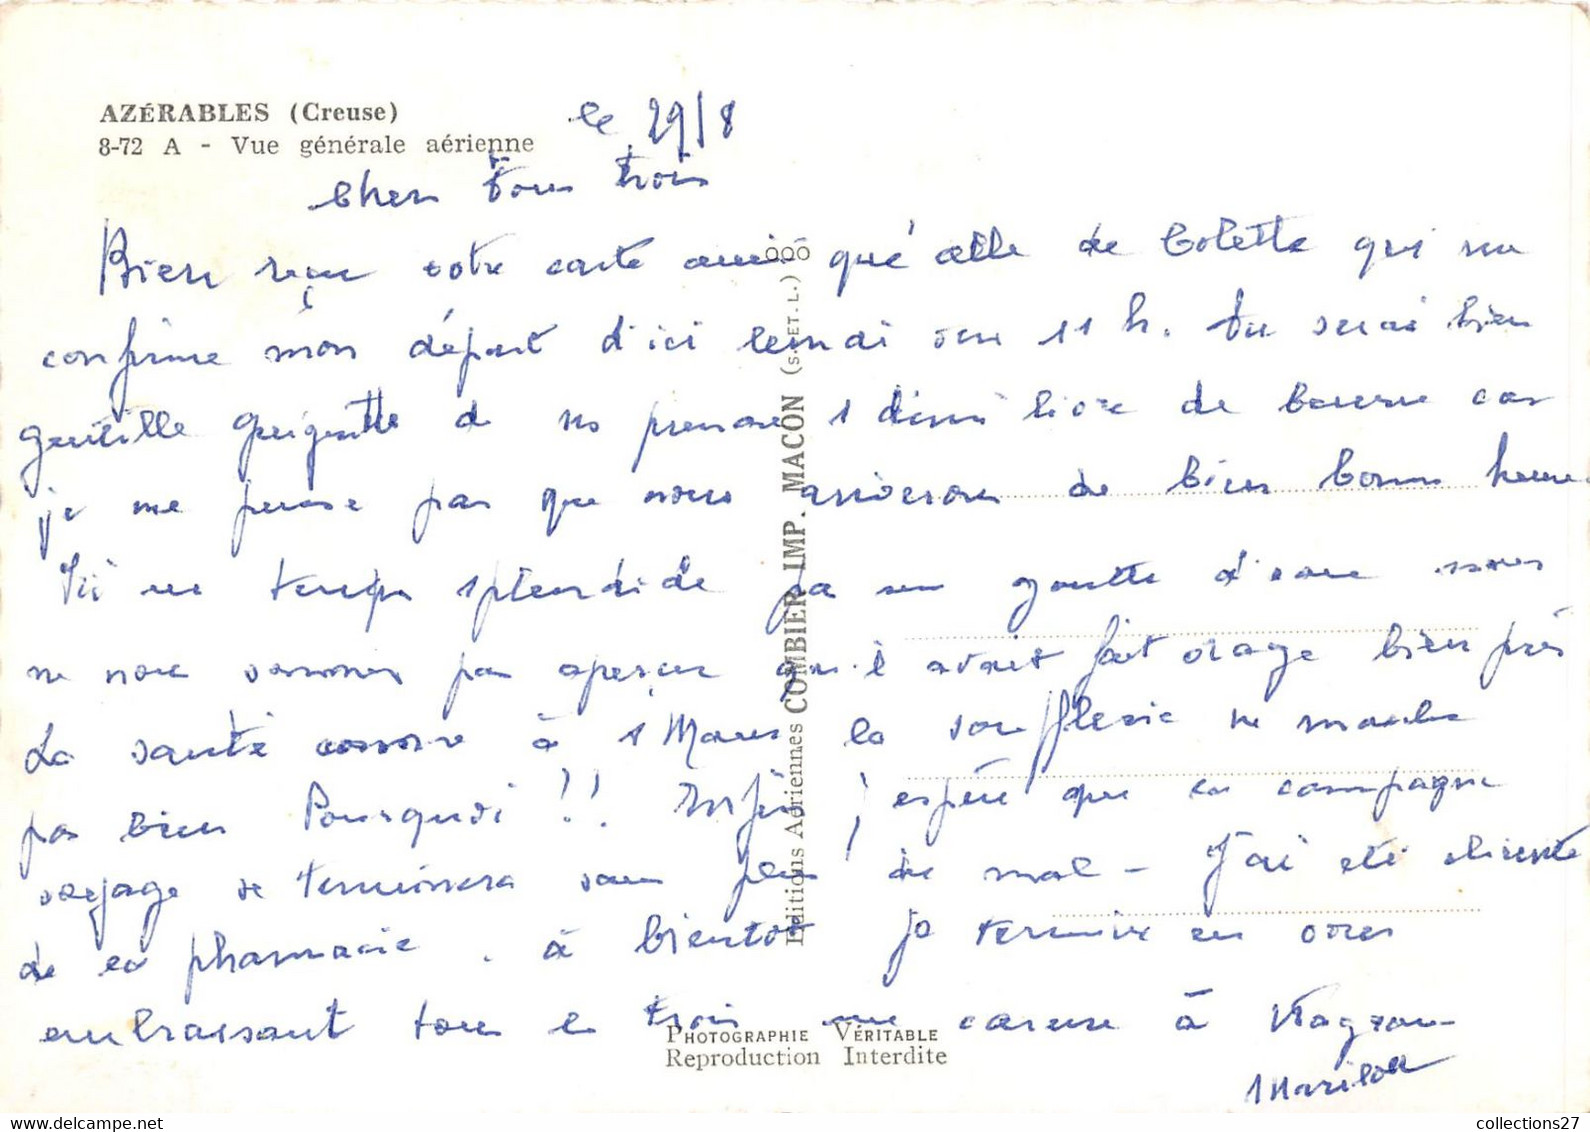 AZÉRABLES (Creuse)
8-72 A - Vue générale aérienne
le 29/8
Chers tous trois
Bien reçu votre carte ainsi que celle de Colette qui me
confirme mon départ d'ici lundi vers 11 h. Tu serais bien
gentille de me prendre 1 demi livre de beurre car
je ne pense pas que nous arriverons de bien bonne heure
Ici un temps splendide pas une goutte d'eau nous
ne nous sommes pas aperçus qu'il avait fait orage bien près
La santé comme à la soufflerie ne marche
pas bien Pourquoi !! Enfin j'espère que la campagne
voyage se terminera sans plus de mal - J'ai été
de la pharmacie. à bientôt je termine en vous
embrassant tous les trois une caresse à
Marilou
Editions Aériennes COMBIER IMP. MACON (S. ET. L.)
PHOTOGRAPHIE VÉRITABLE
Reproduction Interdite
collections27